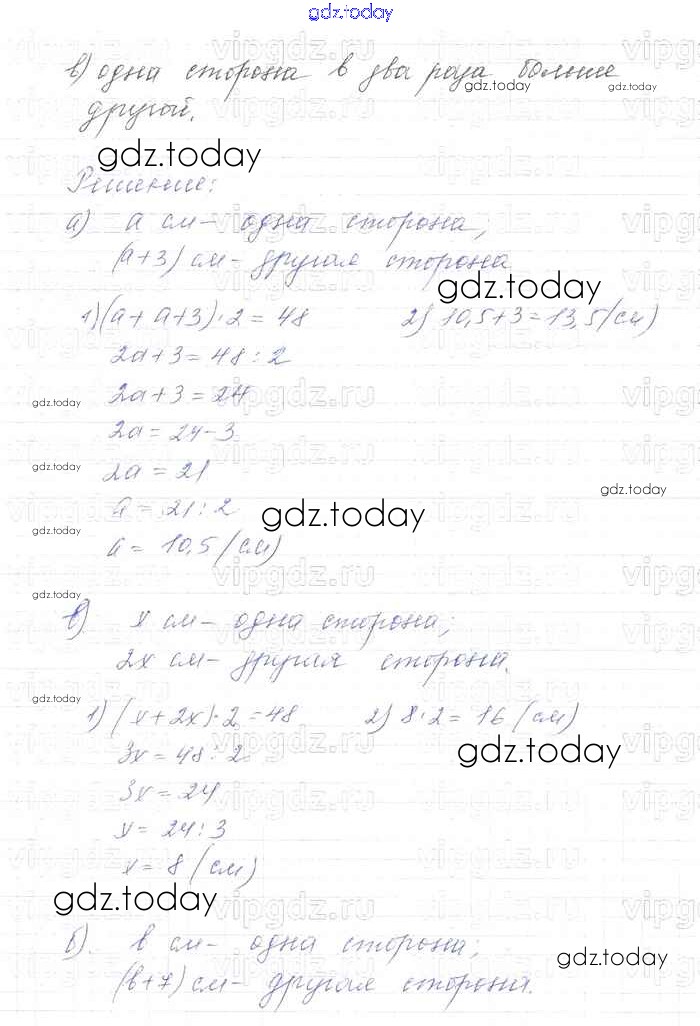 gdz.today
в) одна сторона в два раза больше
gdz.today gdz.today
другой.
gdz.today
Решение:
а) a см – одна сторона;
(a+3) см – другая сторона
gdz.today
1) (a + a+3)·2 = 48 2) 10,5+3 = 13,5 (см)
2a+3 = 48:2
gdz.today 2a+3 = 24
2a = 24-3
gdz.today 2a = 21
gdz.today
a = 21:2
gdz.today
gdz.today
a = 10,5 (см)
gdz.today
в) x см – одна сторона;
2x см – другая сторона.
gdz.today
1) (x+2x)·2 = 48 2) 8·2 = 16 (см)
gdz.today
3x = 48:2
3x = 24
x = 24:3
x = 8 (см)
gdz.today
б). в см – одна сторона;
gdz.today
(в+7) см – другая сторона.
vipgdz.ru